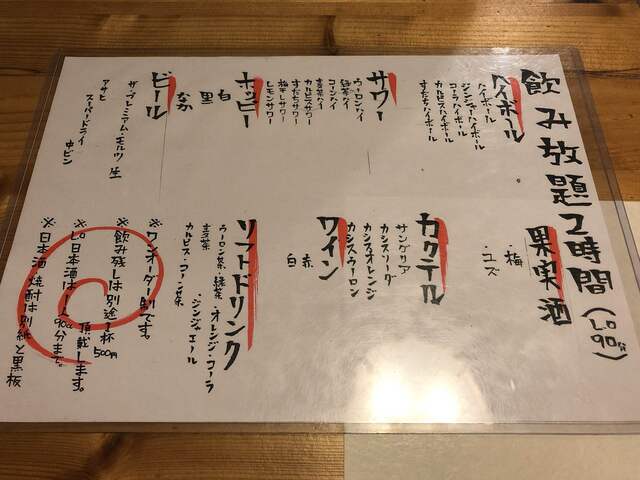 飲み放題2時間(L.O 90分)
ハイボール
ハイボール
ジンジャーハイボール
コーラハイボール
カルピスハイボール
すだちハイボール
サワー
ウーロンハイ
緑茶ハイ
コーンハイ
麦茶ハイ
カルピスサワー
すだちサワー
梅干しサワー
レモンサワー
ホッピー
白
黒
なか
ビール
ザ・プレミアム・モルツ 生
アサヒ
スーパードライ 中ビン
果実酒
・梅
・ユズ
カクテル
サングリア
カシスソーダ
カシスオレンジ
カシスウーロン
ワイン
赤
白
ソフトドリンク
ウーロン茶・緑茶・オレンジ・コーラ
麦茶 ・ジンジャエール
カルピス・コーン茶
※ワンオーダー制です。
※飲み残しは別途1杯500円
頂戴します。
※L.O日本酒は90分まで。
※日本酒 焼酎は別紙と黒板